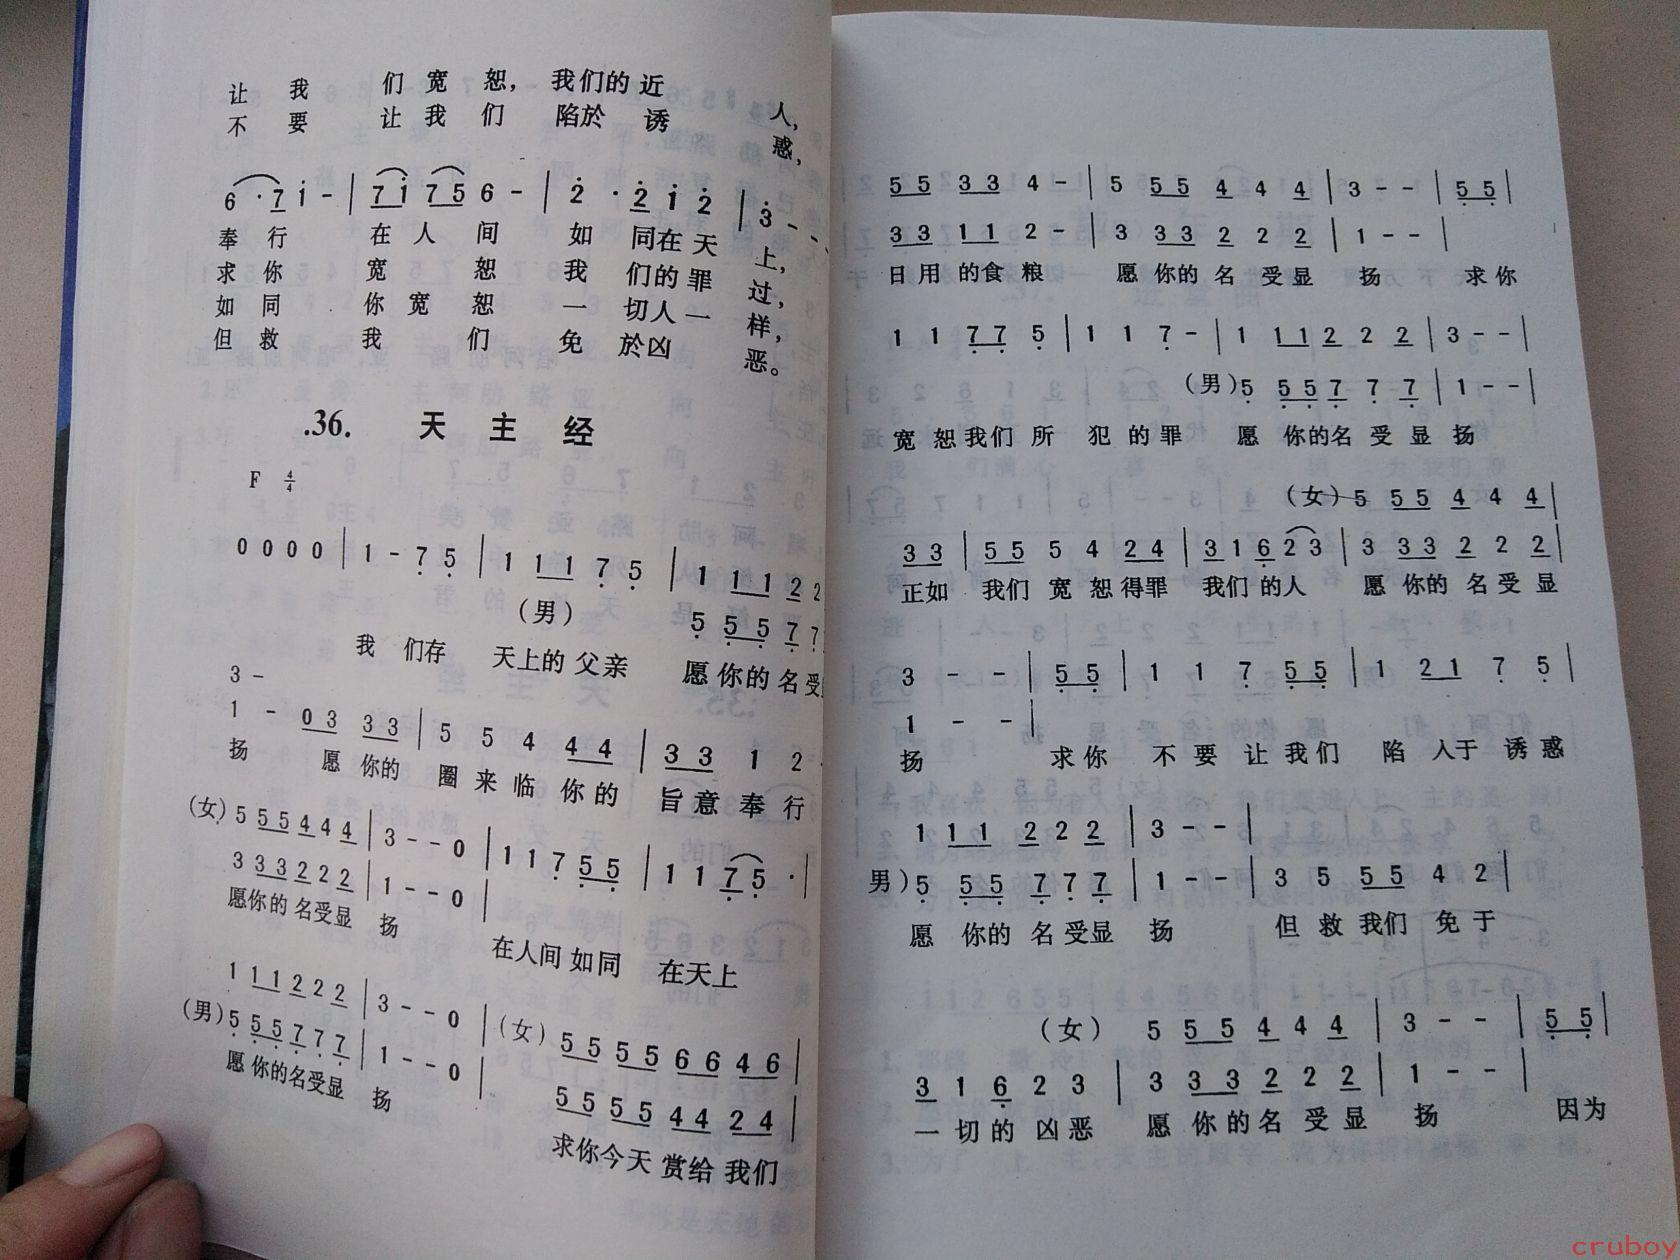 让 我 们 宽 恕, 我们的 近 人,
不 要 让 我 们 陷於 诱 惑,
6·7i- | 7i 75 6- | 2·2i2 | 3--
奉 行 在 人 间 如 同在 天 上,
求 你 宽 恕 我 们的 罪 过,
如 同 你 宽 恕 一 切人 一 样,
但 救 我 们 免 於凶 恶。
.36. 天 主 经
F 4/4
0 0 0 0 | 1 - 7 5 | 1 11 7 5 | 1 11 2 2
(男) 5 55 7 7
我 们存 天上的 父亲 愿 你的 名受显
3 -
1 - 03 33 | 5 5 4 44 | 33 1 2·
扬 愿 你的 圈 来 临 你 的 旨 意 奉 行
(女) 5 55 44 4 | 3 - - 0 | 1 1 7 55 | 1 1 75· |
3 33 22 2 | 1 - - 0
愿你的 名受显 扬 在人间 如同 在天上
1 11 22 2 | 3 - - 0 | (女) 55 55 66 46 |
(男) 5 55 77 7 | 1 - - 0 | 55 55 44 24 |
愿 你的名受显 扬 求你今天 赏给 我们
55 33 4 - | 5 55 4 4 4 | 3 - - | 55 |
33 11 2 - | 3 33 2 2 2 | 1 - - |
日用 的食 粮 愿 你的 名 受显 扬 求你
1 1 77 5 | 1 1 7 - | 1 11 2 2 2 | 3 - - |
(男) 5 55 7 7 7 | 1 - - |
宽 恕我们 所 犯 的罪 愿 你的名 受 显 扬
(女) 5 55 4 4 4 |
33 | 55 5 4 24 | 31623 | 3 33 2 2 2 |
正如 我们 宽 恕得罪 我们 的人 愿 你的 名 受 显
3 - - | 55 | 1 1 7 55 | 1 21 7 5 |
1 - - |
扬 求你 不 要 让 我 们 陷 入于 诱 惑
1 11 2 2 2 | 3 - - |
男) 5 55 7 7 7 | 1 - - | 3 5 55 4 2 |
愿 你的 名 受显 扬 但 救 我们 免 于
(女) 5 55 4 4 4 | 3 - - | 55 |
3 1 6 2 3 | 3 33 2 2 2 | 1 - - |
一 切 的 凶 恶 愿 你 的 名 受 显 扬 因为
cruboy